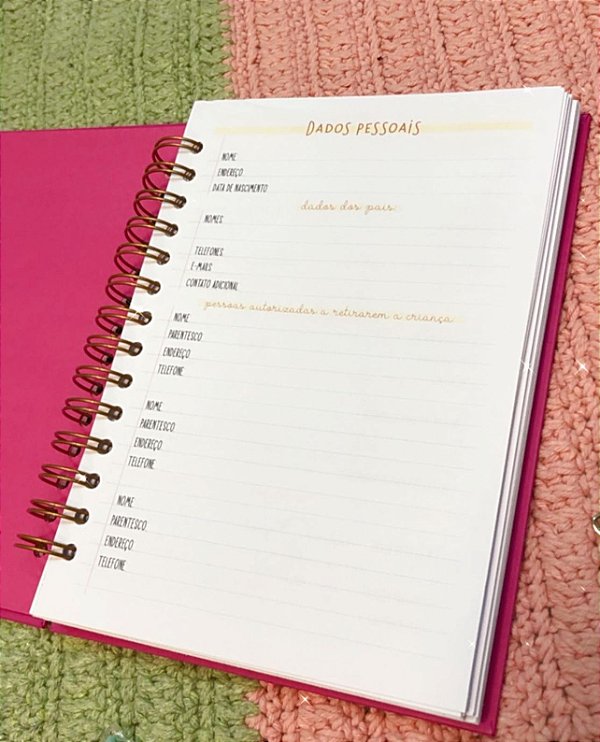 DADOS PESSOAIS
NOME
ENDEREÇO
DATA DE NASCIMENTO
dados dos pais:
NOMES
TELEFONES
E-MAILS
CONTATO ADICIONAL
pessoas autorizadas a retirarem a criança
NOME
PARENTESCO
ENDEREÇO
TELEFONE
NOME
PARENTESCO
ENDEREÇO
TELEFONE
NOME
PARENTESCO
ENDEREÇO
TELEFONE